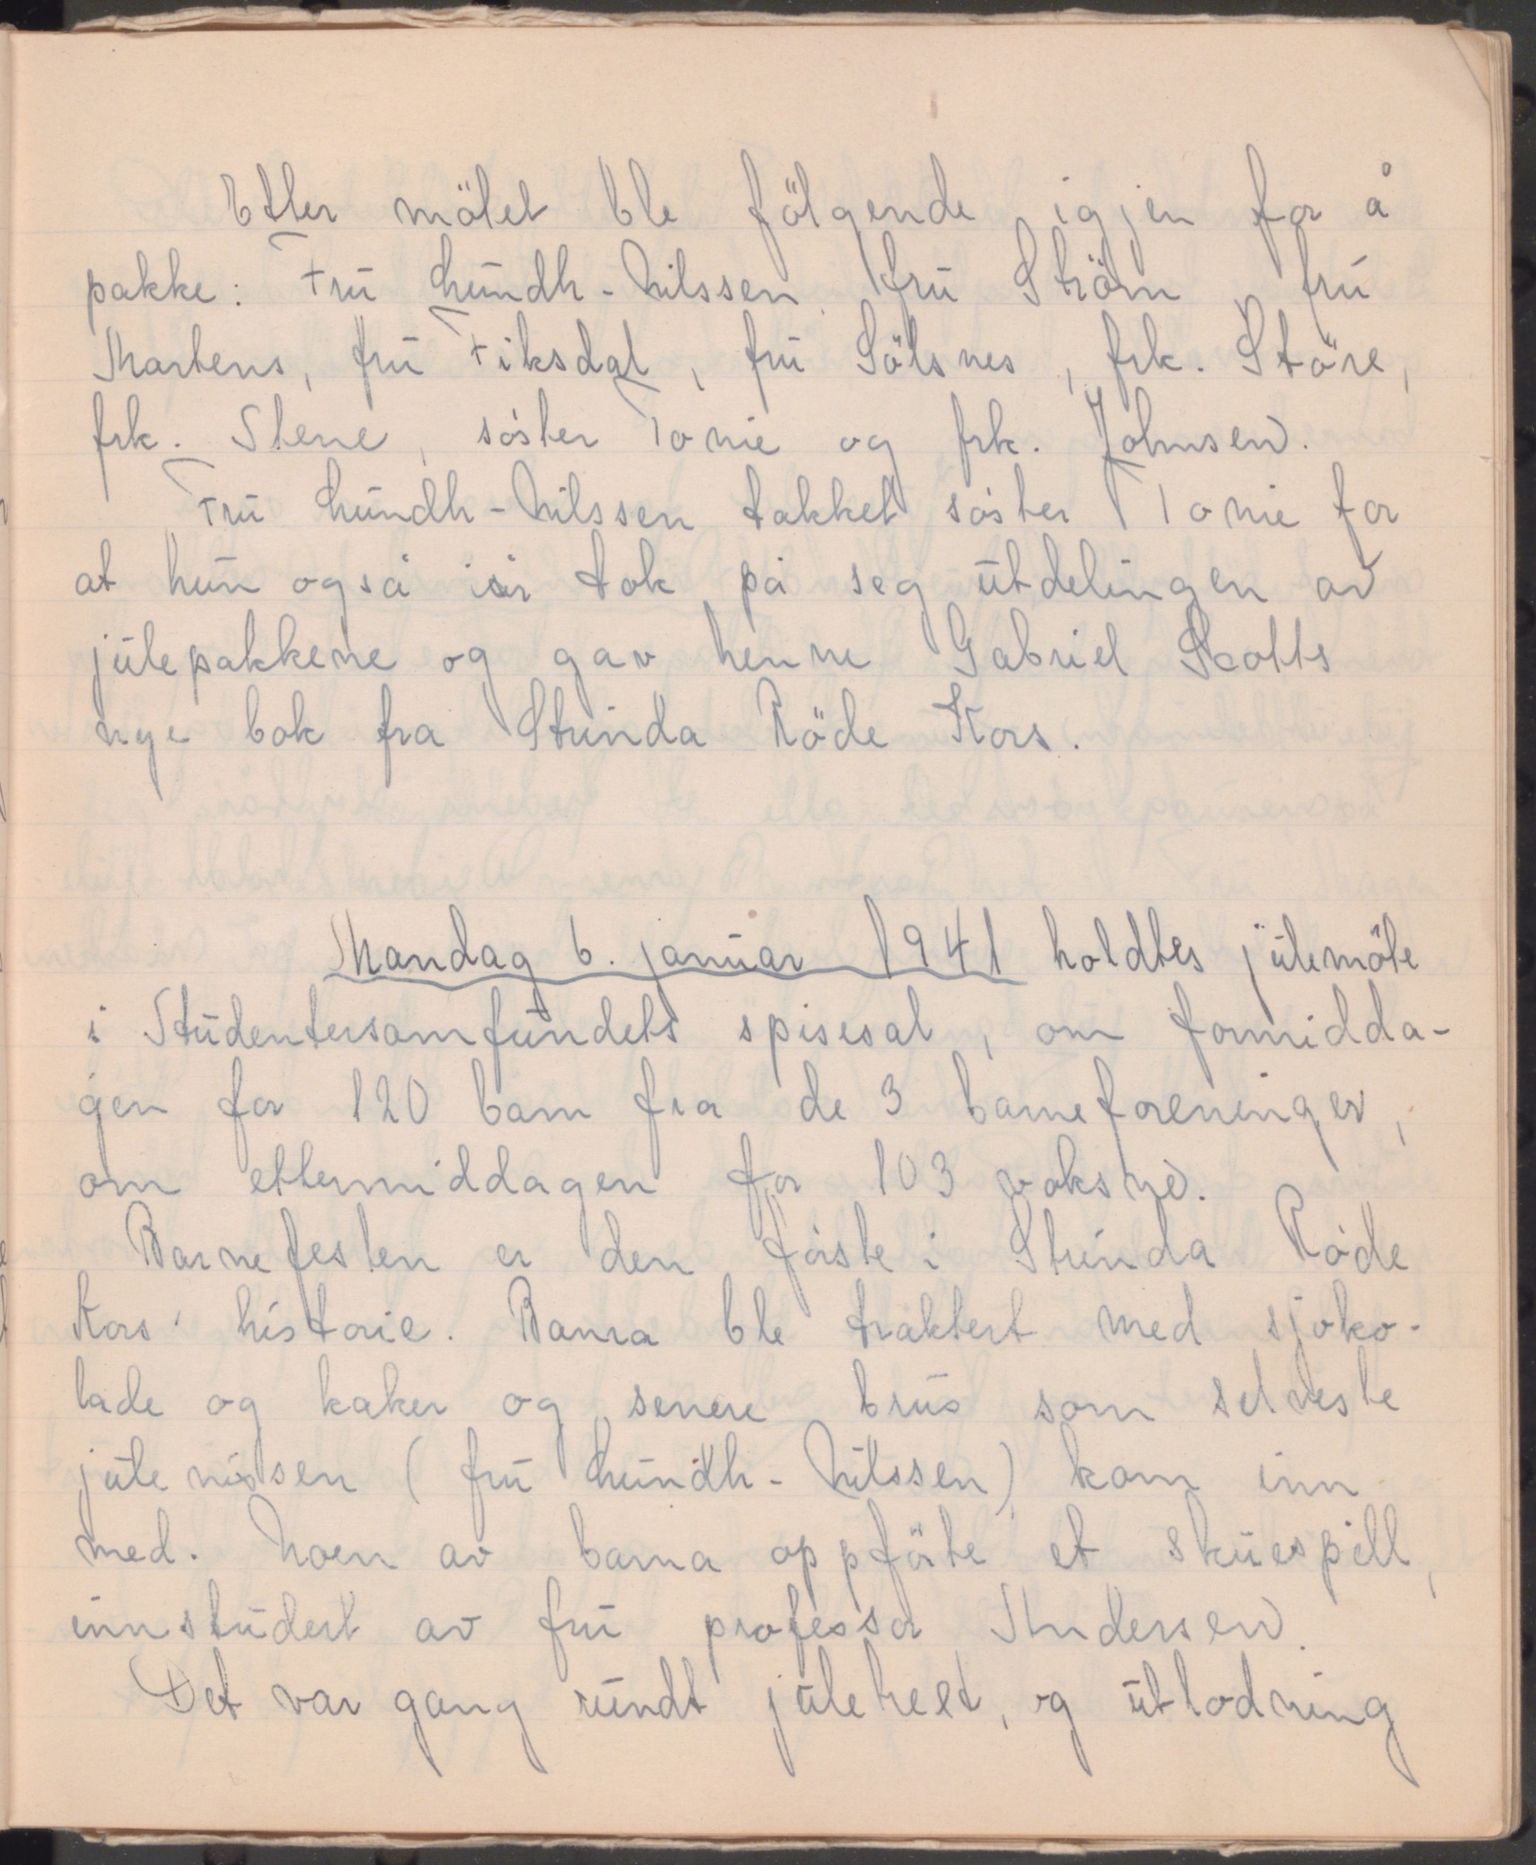 Etter mötet ble fölgende igjen for å
pakke: Fru Lundh-Nilssen, fru Ström, fru
Martens, fru Fiksdal, fru Sölsnes, frk. Störe,
frk. Stene, söster Tonie og frk. Johnsen.
Fru Lundh-Nilssen takket söster Tonie for
at hun også iår tok på seg utdelingen av
julepakkene og gav henne Gabriel Scotts
nye bok fra Strinda Röde Kors.
Mandag 6. januar 1941 holdtes julemöte
i Studentersamfundets spisesal, om formidda-
gen for 120 barn fra de 3 barneforeninger,
om ettermiddagen for 103 voksne.
Barnefesten er den förste i Strinda Röde
Kors' historie. Barna ble traktert med sjoko-
lade og kaker og senere brus som selveste
julenissen (fru Lundh-Nilssen) kom inn
med. Noen av barna oppförte et skuespill,
innstudert av fru professor Andersen.
Det var gang rundt juletreet, og utlodning